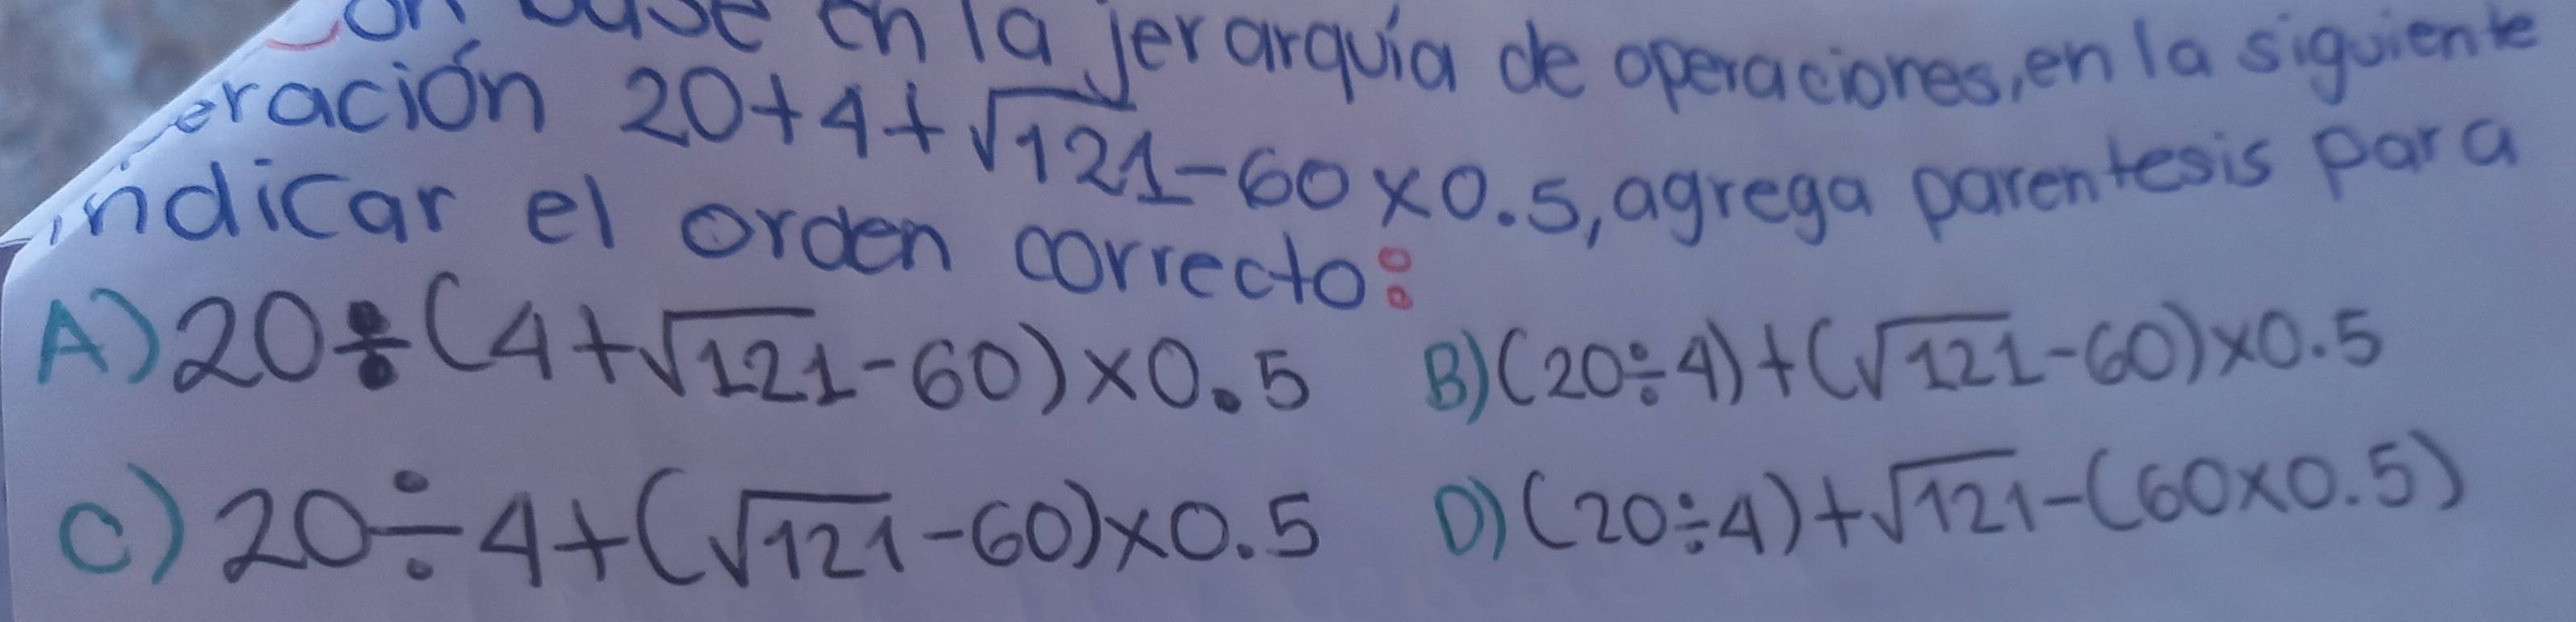 en la jerarquía de operaciones, en la siguiente
eración 20+4+√121-60×0.5, agrega parentesis para
indicar el orden correcto:
A) 20÷(4+√121-60)×0.5 B) (20÷4)+(√121-60)×0.5
C) 20÷4+(√121-60)×0.5 D) (20÷4)+√121-(60×0.5)